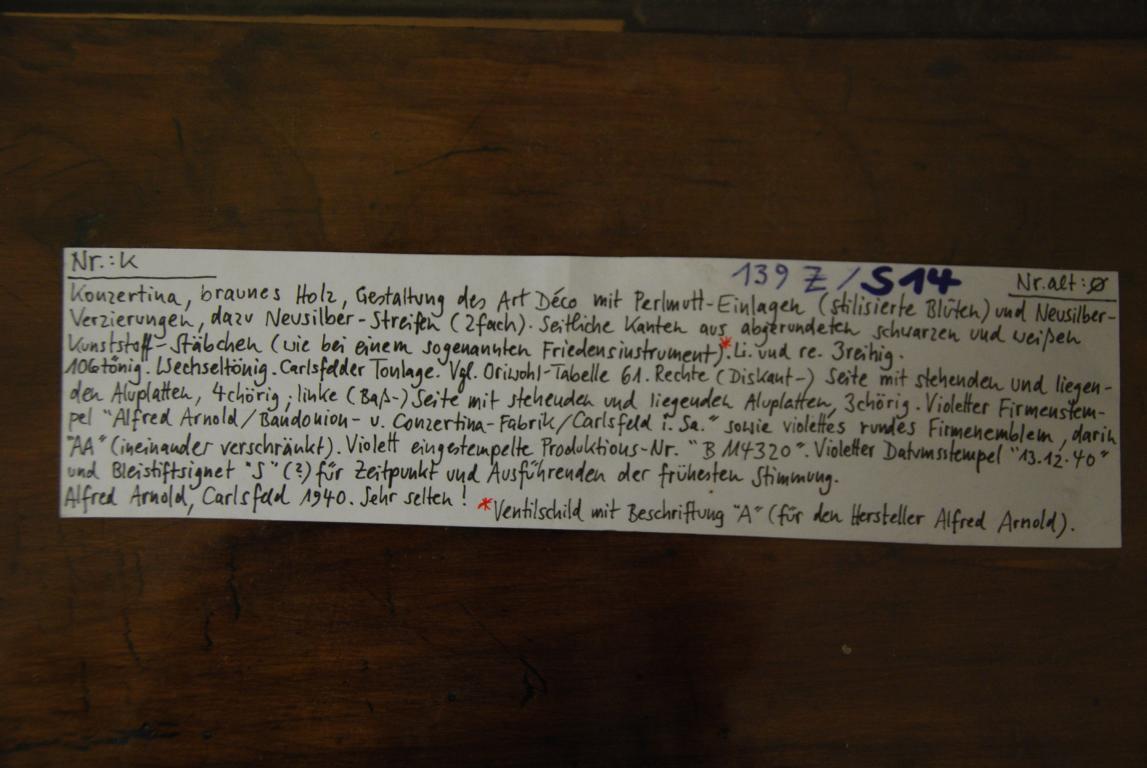 Nr.: K 139 Z / S14 Nr. alt: Ø
Konzertina, braunes Holz, Gestaltung des Art Déco mit Perlmutt-Einlagen (stilisierte Blüten) und Neusilber-
Verzierungen, dazu Neusilber-Streifen (2fach). Seitliche Kanten aus abgerundeten schwarzen und weißen
Kunststoff-Stäbchen (wie bei einem sogenannten Friedensinstrument).* Li. und re. 3reihig.
106tönig. Wechseltönig. Carlsfelder Tonlage. Vgl. Oriwohl-Tabelle 61. Rechte (Diskant-) Seite mit stehenden und liegen-
den Aluplatten, 4chörig; linke (Baß-) Seite mit stehenden und liegenden Aluplatten, 3chörig. Violetter Firmenstem-
pel "Alfred Arnold/Bandonion- u. Conzertina-Fabrik/Carlsfeld i. Sa." sowie violettes rundes Firmenemblem, darin
"AA" (ineinander verschränkt). Violett eingestempelte Produktions-Nr. "B 114320". Violetter Datumsstempel "13.12.40"
und Bleistiftsignet "S" (?) für Zeitpunkt und Ausführenden der frühesten Stimmung.
Alfred Arnold, Carlsfeld 1940. Sehr selten! *Ventilschild mit Beschriftung "A" (für den Hersteller Alfred Arnold).